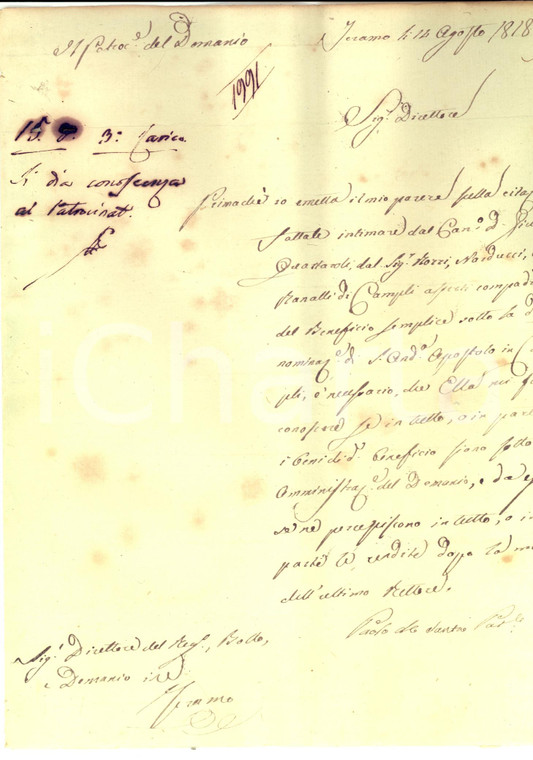 Il Patroc.e del Demanio
Teramo li 14 Agosto 1818
1991
Sig.r Direttore
15. 8. 3.o Carico.
Si dia conoscenza
al Patrocinat.
Primachè io emetta il mio parere sulla citaz
fattale intimare dal Can.o d.
dal Sig.r Narducci,
di Campli
del Beneficio semplice sotto la d
nominaz.e di S. And.a Apostolo in C
pli, è necessario, che Ella mi f
conoscere se in tutto, o in par
i beni di d.o Beneficio siano sotto
Amministraz.e del Demanio, e da es
se ne percepiscono in tutto, o in
parte le rendite dopo la mo
dell'ultimo Rettore.
Paolo de Santis
Sig.r Direttore del Reg.o, Bollo,
e Demanio
Teramo